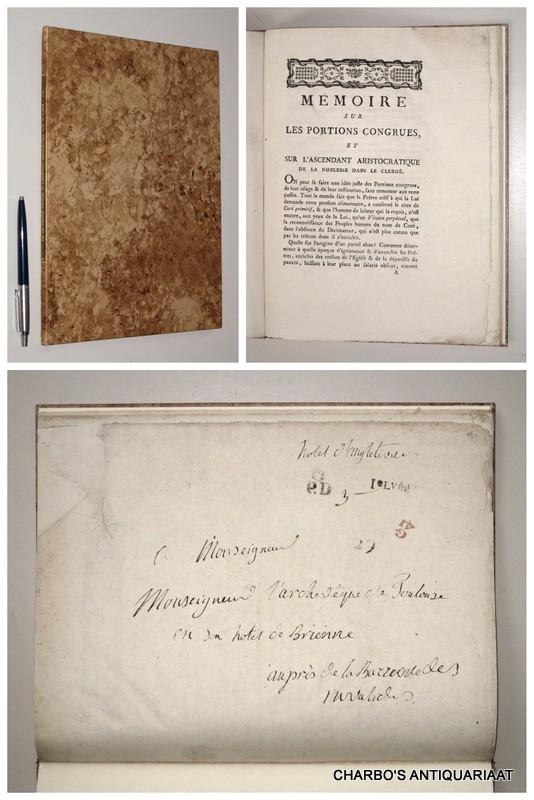 MÉMOIRE
SUR
LES PORTIONS CONGRUES,
ET
SUR L'ASCENDANT ARISTOCRATIQUE
DE LA NOBLESSE DANS LE CLERGÉ.
ON peut se faire une idée juste des Portions congrues,
de leur usage & de leur institution, sans remonter aux tems
passés. Tout le monde sait que le Prêtre oisif à qui la Loi
demande cette portion alimentaire, a conservé le titre de
Curé primitif, & que l'homme de labeur qui la reçoit, n'est
encore, aux yeux de la Loi, qu'un Vicaire perpétuel, que
la reconnoissance des Peuples honore du nom de Curé,
dans l'absence du Décimateur, qui n'est plus connu que
par les trésors dont il s'enrichit.
Quelle fut l'origine d'un pareil abus? Comment déter-
miner à quelle époque d'ignorance & d'anarchie les Prê-
tres, enrichis des trésors de l'Eglise & de la dépouille du
pauvre, laissant à leur place un salarié obscur, vinrent
A
hotel d'angleterre
P.D
3
1eLvée
29
a Monseigneur
Monseigneur l'archevêque de Toulouse
en son hotel de Brienne
auprès de la Barriere des
invalides.
CHARBO'S ANTIQUARIAAT